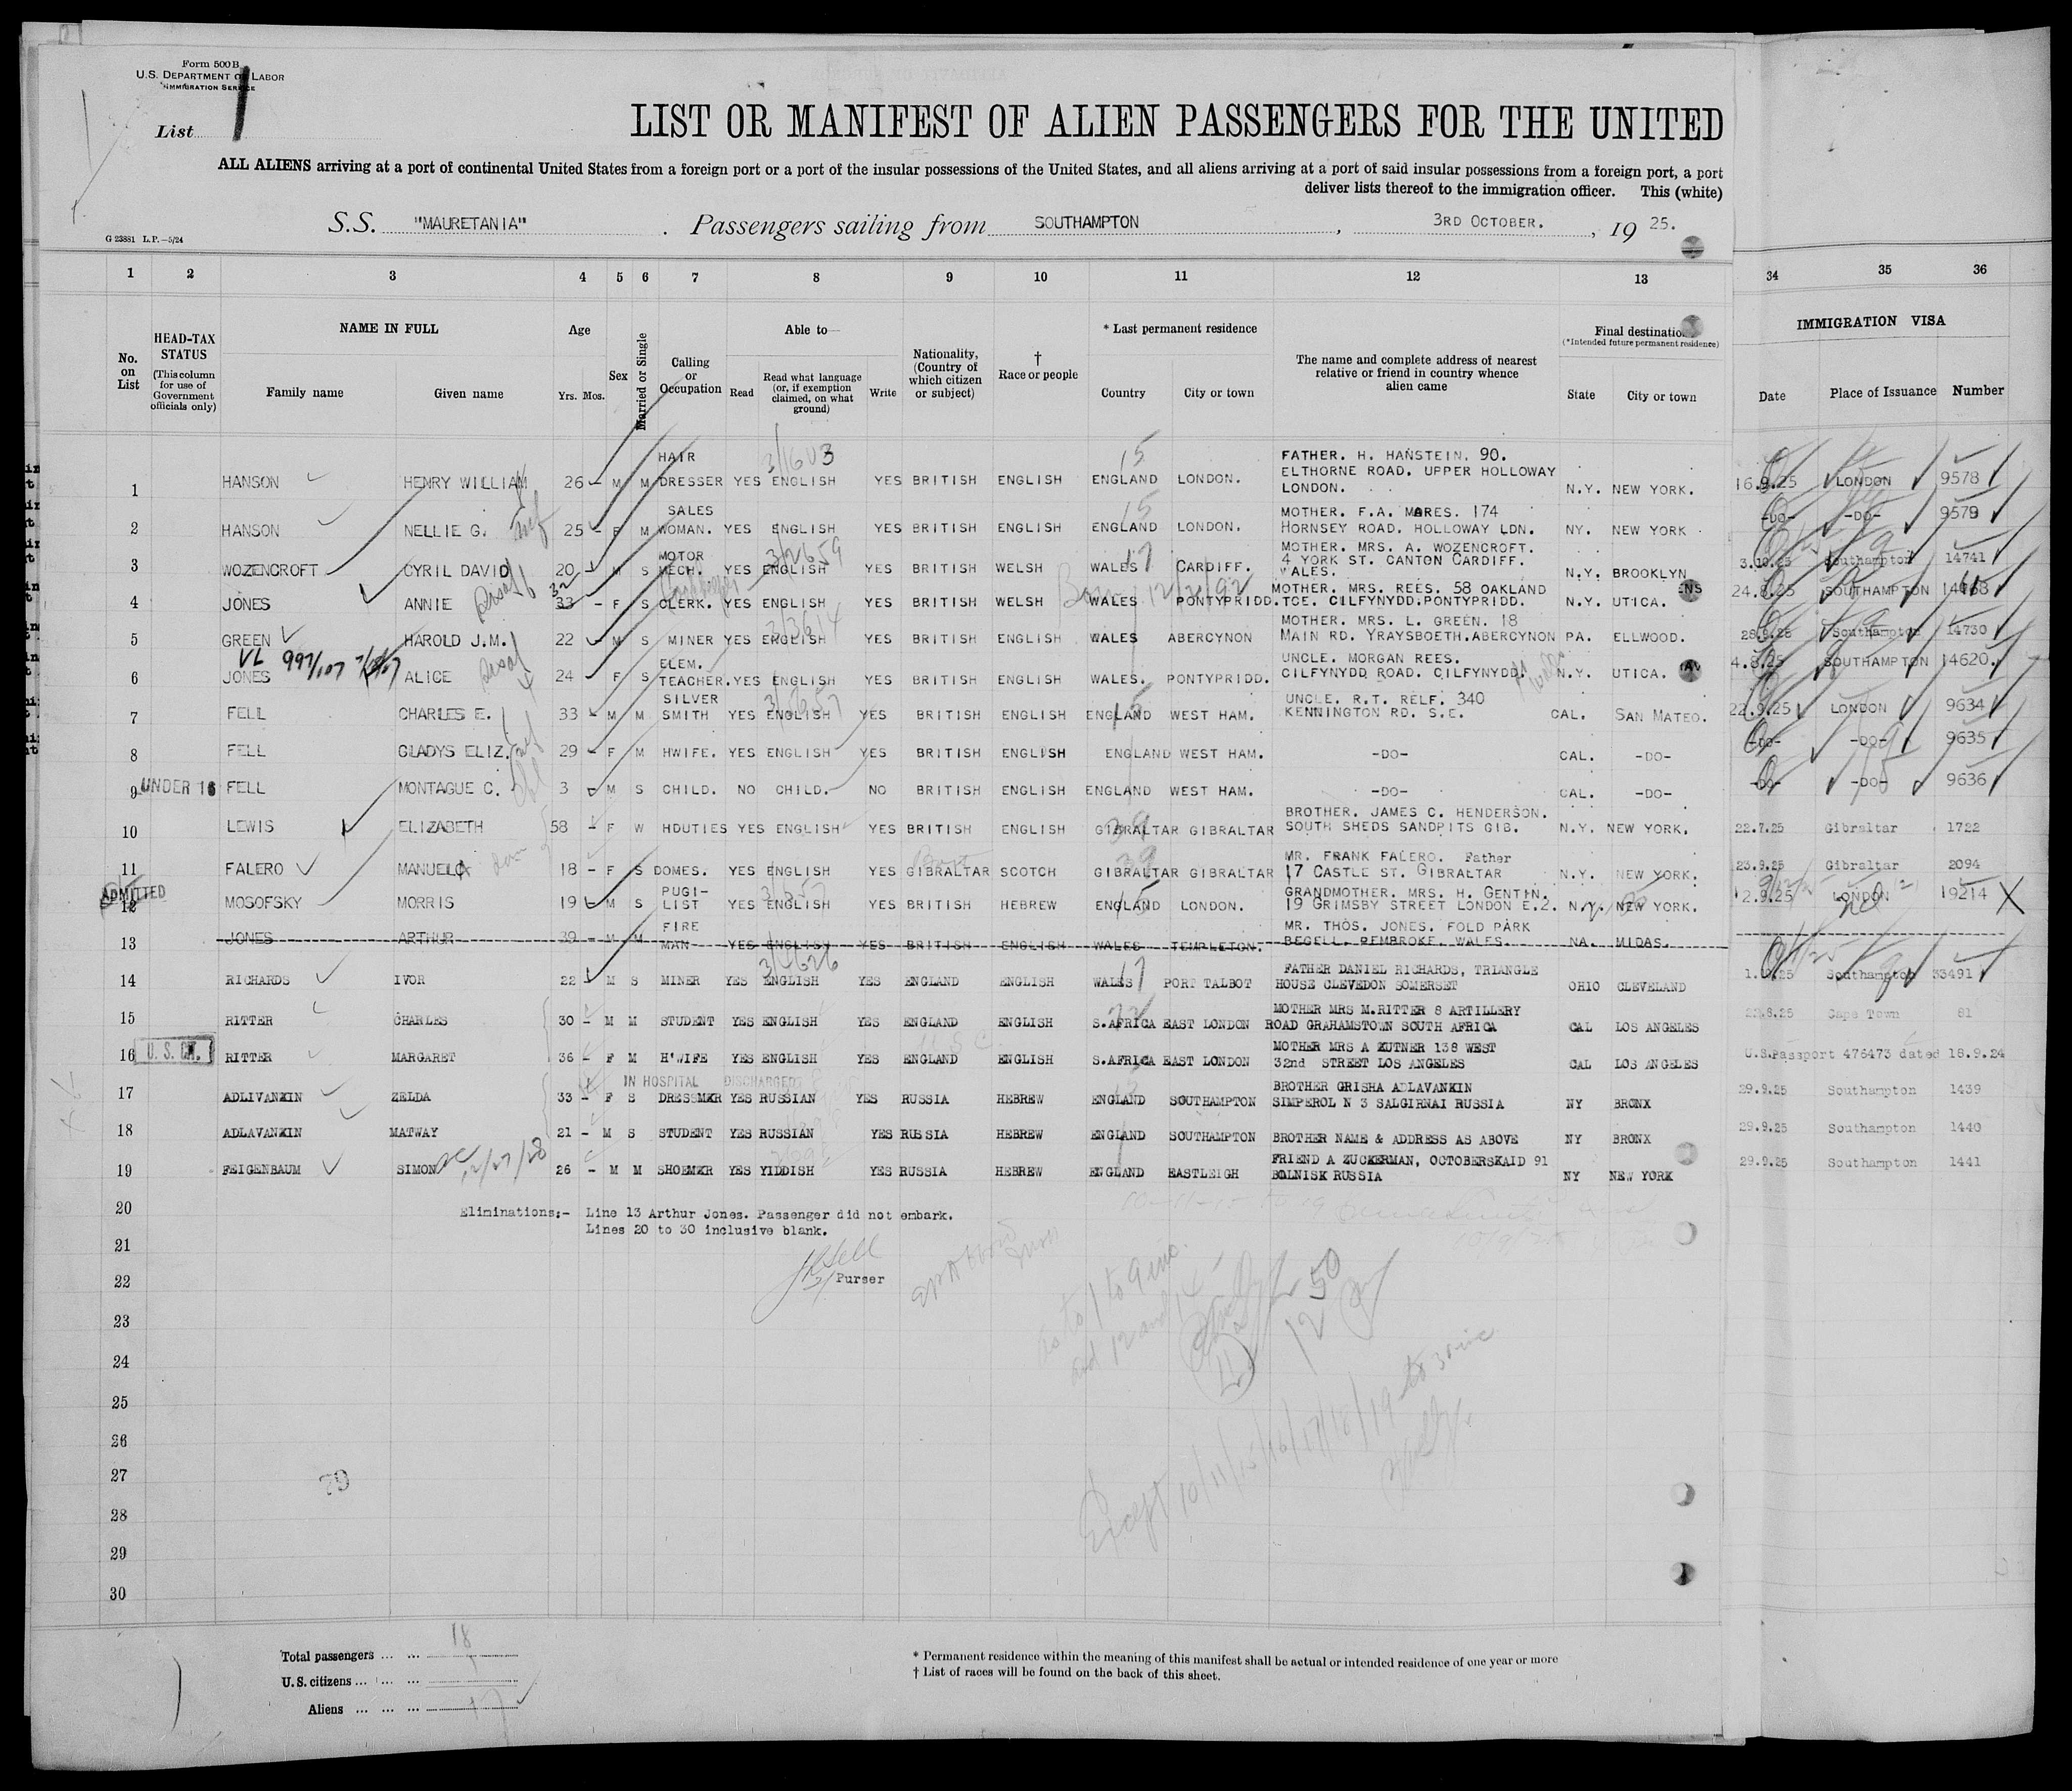 Form 500B
U.S. DEPARTMENT OF LABOR
IMMIGRATION SERVICE
List
LIST OR MANIFEST OF ALIEN PASSENGERS FOR THE UNITED
ALL ALIENS arriving at a port of continental United States from a foreign port or a port of the insular possessions of the United States, and all aliens arriving at a port of said insular possessions from a foreign port, a port
deliver lists thereof to the immigration officer. This (white)
S.S. "MAURETANIA" . Passengers sailing from SOUTHAMPTON , 3RD OCTOBER. , 19 25.
G 23881 L.P.—5/24
1 2 3 4 5 6 7 8 9 10 11 12 13 34 35 36
No. on List
HEAD-TAX STATUS
(This column for use of Government officials only)
NAME IN FULL
Family name Given name
Age
Yrs. Mos.
Sex
Married or Single
Calling or Occupation
Able to—
Read
Read what language (or, if exemption claimed, on what ground)
Write
Nationality, (Country of which citizen or subject)
† Race or people
* Last permanent residence
Country City or town
The name and complete address of nearest relative or friend in country whence alien came
Final destination
(*Intended future permanent residence)
State City or town
IMMIGRATION VISA
Date Place of Issuance Number
1 HANSON HENRY WILLIAM 26 M M HAIR DRESSER YES ENGLISH YES BRITISH ENGLISH ENGLAND LONDON. FATHER. H. HANSTEIN. 90. ELTHORNE ROAD. UPPER HOLLOWAY LONDON. N.Y. NEW YORK. 16.9.25 LONDON 9578
2 HANSON NELLIE G. 25 F M SALES WOMAN. YES ENGLISH YES BRITISH ENGLISH ENGLAND LONDON. MOTHER. F.A. MARES. 174 HORNSEY ROAD. HOLLOWAY LDN. NY. NEW YORK -DO- -DO- 9579
3 WOZENCROFT CYRIL DAVID 20 M S MOTOR MECH. YES ENGLISH YES BRITISH WELSH WALES CARDIFF. MOTHER. MRS. A. WOZENCROFT. 4 YORK ST. CANTON CARDIFF. WALES. N.Y. BROOKLYN Southampton 14741
4 JONES ANNIE 33 - F S CLERK. YES ENGLISH YES BRITISH WELSH WALES PONTYPRIDD. MOTHER. MRS. REES. 58 OAKLAND TCE. CILFYNYDD.PONTYPRIDD. N.Y. UTICA. SOUTHAMPTON
5 GREEN HAROLD J.M. 22 M S MINER YES ENGLISH YES BRITISH ENGLISH WALES ABERCYNON MOTHER. MRS. L. GREEN. 18 MAIN RD. YRAYSBOETH.ABERCYNON PA. ELLWOOD. Southampton 14730
6 JONES ALICE 24 F S ELEM. TEACHER. YES ENGLISH YES BRITISH ENGLISH WALES. PONTYPRIDD. UNCLE. MORGAN REES. CILFYNYDD ROAD. CILFYNYDD. N.Y. UTICA. SOUTHAMPTON 14620.
7 FELL CHARLES E. 33 M M SILVER SMITH YES ENGLISH YES BRITISH ENGLISH ENGLAND WEST HAM. UNCLE. R.T. RELF. 340 KENNINGTON RD. S.E. CAL. SAN MATEO. 22.9.25 LONDON 9634
8 FELL GLADYS ELIZ. 29 - F M HWIFE. YES ENGLISH YES BRITISH ENGLISH ENGLAND WEST HAM. -DO- CAL. -DO- -DO- -DO- 9635
9 UNDER 16 FELL MONTAGUE C. 3 M S CHILD. NO CHILD. NO BRITISH ENGLISH ENGLAND WEST HAM. -DO- CAL. -DO- -DO- -DO- 9636
10 LEWIS ELIZABETH 58 - F W HDUTIES YES ENGLISH YES BRITISH ENGLISH GIBRALTAR GIBRALTAR BROTHER. JAMES C. HENDERSON. SOUTH SHEDS SANDPITS GIB. N.Y. NEW YORK. 22.7.25 Gibraltar 1722
11 FALERO MANUELA 18 - F S DOMES. YES ENGLISH YES GIBRALTAR SCOTCH GIBRALTAR GIBRALTAR MR. FRANK FALERO. Father 17 CASTLE ST. GIBRALTAR N.Y. NEW YORK. 23.9.25 Gibraltar 2094
ADMITTED
12 MOSOFSKY MORRIS 19 M S PUGI-LIST YES ENGLISH YES BRITISH HEBREW ENGLAND LONDON. GRANDMOTHER. MRS. H. GENTIN. 19 GRIMSBY STREET LONDON E.2. N.Y. NEW YORK. 2.9.25 LONDON 19214
13 JONES ARTHUR 39 - M M FIRE MAN YES ENGLISH YES BRITISH ENGLISH WALES TEMPLETON. MR. THOS. JONES. FOLD PARK BEGELL. PEMBROKE. WALES. NA. MIDAS.
14 RICHARDS IVOR 22 M S MINER YES ENGLISH YES ENGLAND ENGLISH WALES PORT TALBOT FATHER DANIEL RICHARDS, TRIANGLE HOUSE CLEVEDON SOMERSET OHIO CLEVELAND Southampton 33491
15 RITTER CHARLES 30 - M M STUDENT YES ENGLISH YES ENGLAND ENGLISH S.AFRICA EAST LONDON MOTHER MRS M.RITTER 8 ARTILLERY ROAD GRAHAMSTOWN SOUTH AFRICA CAL LOS ANGELES 22.8.25 Cape Town 81
16 U.S. CIT. RITTER MARGARET 36 - F M H'WIFE YES ENGLISH YES ENGLAND ENGLISH S.AFRICA EAST LONDON MOTHER MRS A ZUTNER 138 WEST 32nd STREET LOS ANGELES CAL LOS ANGELES U.S.Passport 476473 dated 18.9.24
IN HOSPITAL DISCHARGED
17 ADLIVANKIN ZELDA 33 - F S DRESSMKR YES RUSSIAN YES RUSSIA HEBREW ENGLAND SOUTHAMPTON BROTHER GRISHA ADLAVANKIN SIMPEROL N 3 SALGIRNAI RUSSIA NY BRONX 29.9.25 Southampton 1439
18 ADLAVANKIN MATWAY 21 - M S STUDENT YES RUSSIAN YES RUSSIA HEBREW ENGLAND SOUTHAMPTON BROTHER NAME & ADDRESS AS ABOVE NY BRONX 29.9.25 Southampton 1440
19 FEIGENBAUM SIMON 12/27/28 26 - M M SHOEMKR YES YIDDISH YES RUSSIA HEBREW ENGLAND EASTLEIGH FRIEND A ZUCKERMAN, OCTOBERSKAID 91 BOLNISK RUSSIA NY NEW YORK 29.9.25 Southampton 1441
20
Eliminations:- Line 13 Arthur Jones. Passenger did not embark.
Lines 20 to 30 inclusive blank.
21
22
Purser
23
24
25
26
27
79
28
29
30
Total passengers ... ... 18
U.S. citizens ... ... ... 1
Aliens ... ... ... 17
* Permanent residence within the meaning of this manifest shall be actual or intended residence of one year or more
† List of races will be found on the back of this sheet.